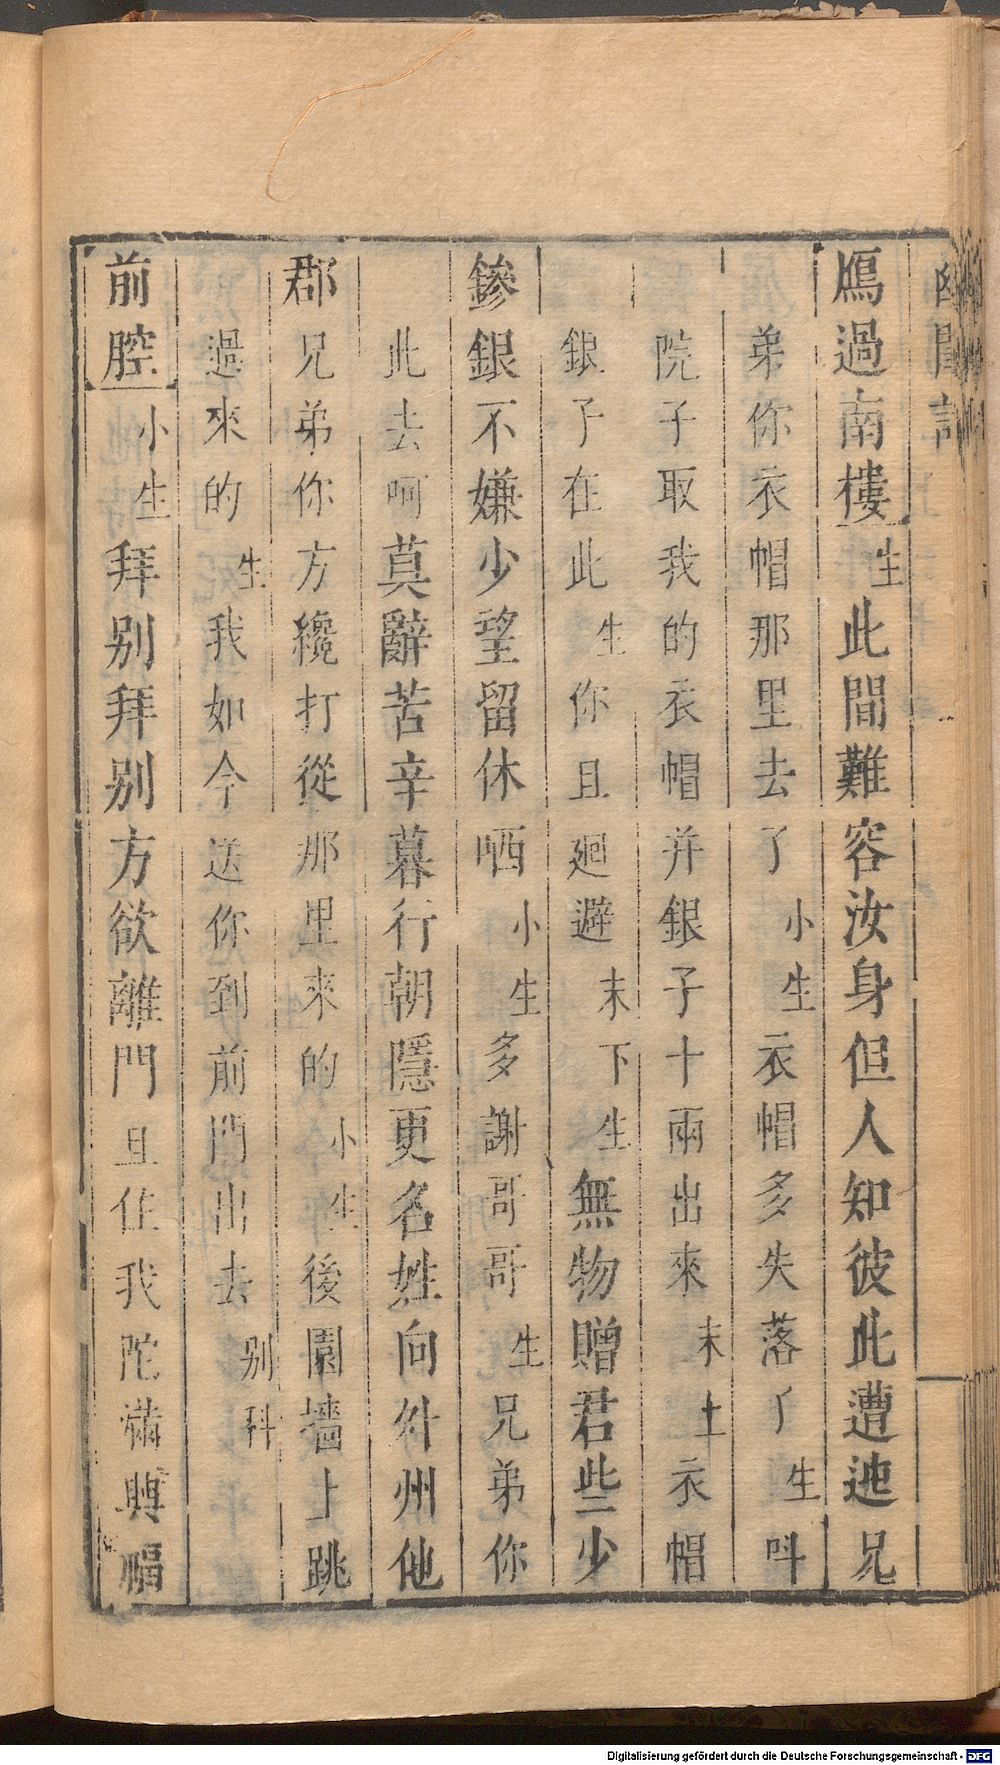 幽閨記
鴈過南樓生此間難容汝身但人知彼此遭迍兄
弟你衣帽那里去了小生衣帽多失落了生呌
院子取我的衣帽并銀子十兩出來末上衣帽
銀子在此生你且廻避末下生無物贈君些少
鏒銀不嫌少望留休哂小生多謝哥哥生兄弟你
此去呵莫辭苦辛暮行朝隱更名姓向外州他
郡兄弟你方纔打從那里來的小生後園墻上跳
過來的生我如今送你到前門出去别科
前腔小生拜别拜别方欲離門且住我陀滿興福
Digitalisierung gefördert durch die Deutsche Forschungsgemeinschaft - DFG